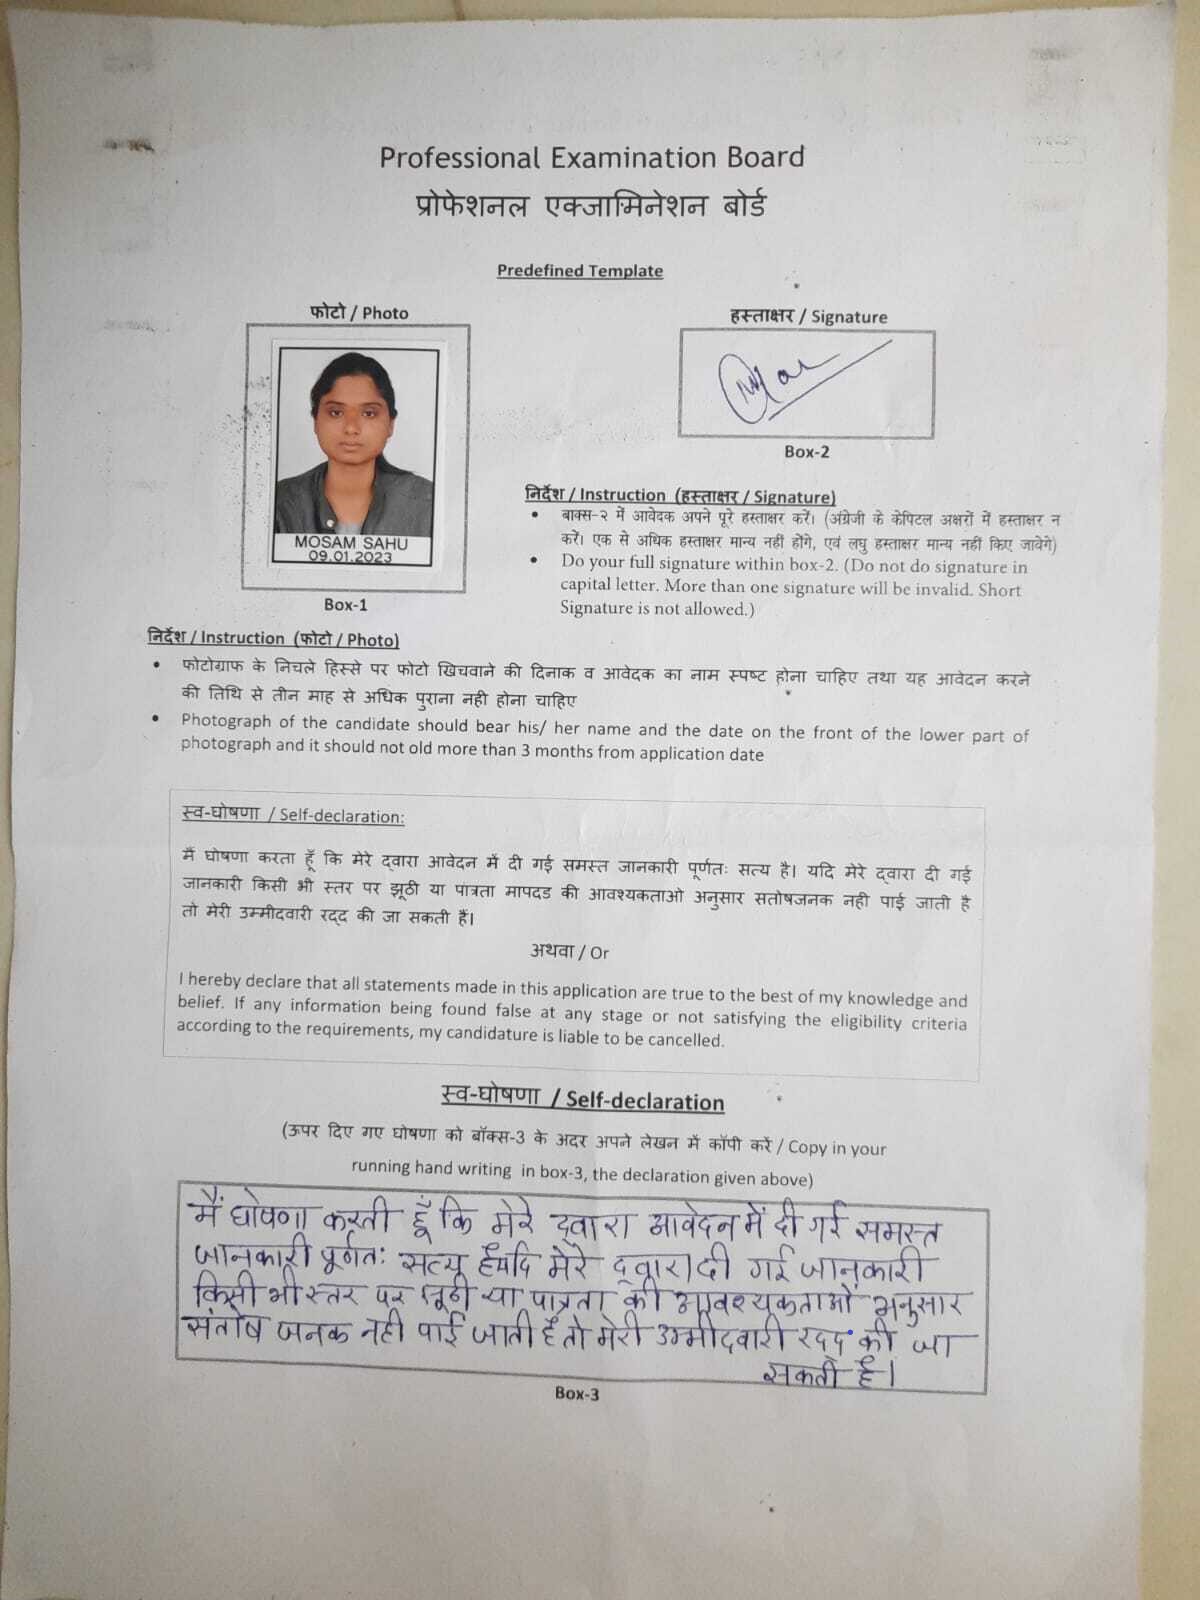 Professional Examination Board
प्रोफेशनल एक्जामिनेशन बोर्ड
Predefined Template
फोटो / Photo
MOSAM SAHU
09.01.2023
Box-1
हस्ताक्षर / Signature
Box-2
निर्देश / Instruction (हस्ताक्षर / Signature)
• बाक्स-२ में आवेदक अपने पूरे हस्ताक्षर करें। (अंग्रेजी के केपिटल अक्षरों में हस्ताक्षर न
करें। एक से अधिक हस्ताक्षर मान्य नहीं होंगे, एवं लघु हस्ताक्षर मान्य नहीं किए जावेगे)
• Do your full signature within box-2. (Do not do signature in
capital letter. More than one signature will be invalid. Short
Signature is not allowed.)
निर्देश / Instruction (फोटो / Photo)
• फोटोग्राफ के निचले हिस्से पर फोटो खिचवाने की दिनाक व आवेदक का नाम स्पष्ट होना चाहिए तथा यह आवेदन करने
की तिथि से तीन माह से अधिक पुराना नही होना चाहिए
• Photograph of the candidate should bear his/ her name and the date on the front of the lower part of
photograph and it should not old more than 3 months from application date
स्व-घोषणा / Self-declaration:
मैं घोषणा करता हूँ कि मेरे द्वारा आवेदन में दी गई समस्त जानकारी पूर्णतः सत्य है। यदि मेरे द्वारा दी गई
जानकारी किसी भी स्तर पर झूठी या पात्रता मापदड की आवश्यकताओ अनुसार सतोषजनक नही पाई जाती है
तो मेरी उम्मीदवारी रद्द की जा सकती हैं।
अथवा / Or
I hereby declare that all statements made in this application are true to the best of my knowledge and
belief. If any information being found false at any stage or not satisfying the eligibility criteria
according to the requirements, my candidature is liable to be cancelled.
स्व-घोषणा / Self-declaration
(ऊपर दिए गए घोषणा को बॉक्स-3 के अदर अपने लेखन में कॉपी करें / Copy in your
running hand writing in box-3, the declaration given above)
मैं घोषणा करती हूँ कि मेरे द्वारा आवेदन में दी गई समस्त
जानकारी पूर्णतः सत्य है यदि मेरे द्वारा दी गई जानकारी
किसी भी स्तर पर झूठी या पात्रता की आवश्यकताओं अनुसार
संतोष जनक नही पाई जाती है तो मेरी उम्मीदवारी रद्द की जा
सकती है।
Box-3